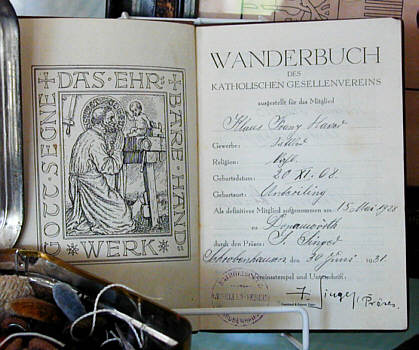 GOTT·SEGNE
DAS·EHR
BARE·HAND
WERK
WANDERBUCH
DES
KATHOLISCHEN GESELLENVEREINS
ausgestellt für das Mitglied
Franz
Gewerbe:
Religion:
Geburtsdatum: 20 XI.
Geburtsort:
Als definitives Mitglied aufgenommen am 15. Mai 1928
zu Donauwörth
durch den Präses: J. Singer
Schrobenhausen den 30 Juni 1931.
Vereinsstempel und Unterschrift:
J. Singer, Präses.